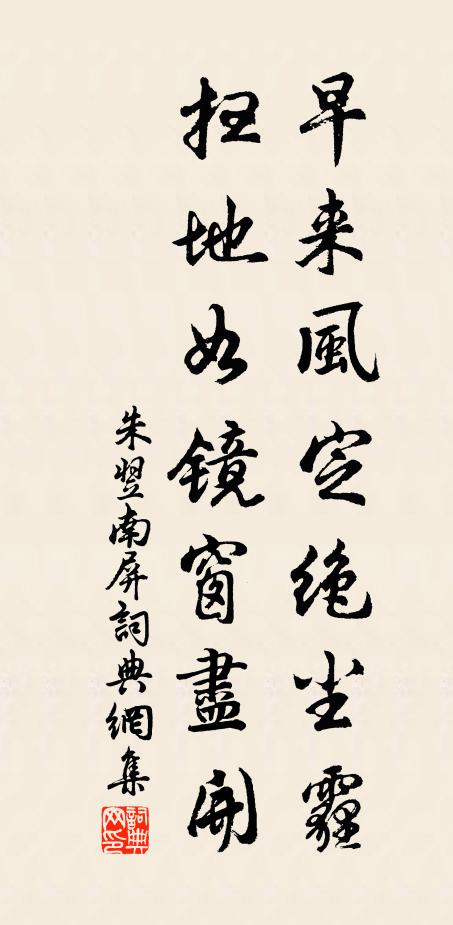 早来風定絶尘霾
扫地如镜窗盡開
朱翌南屏詞典網集
詞典网印